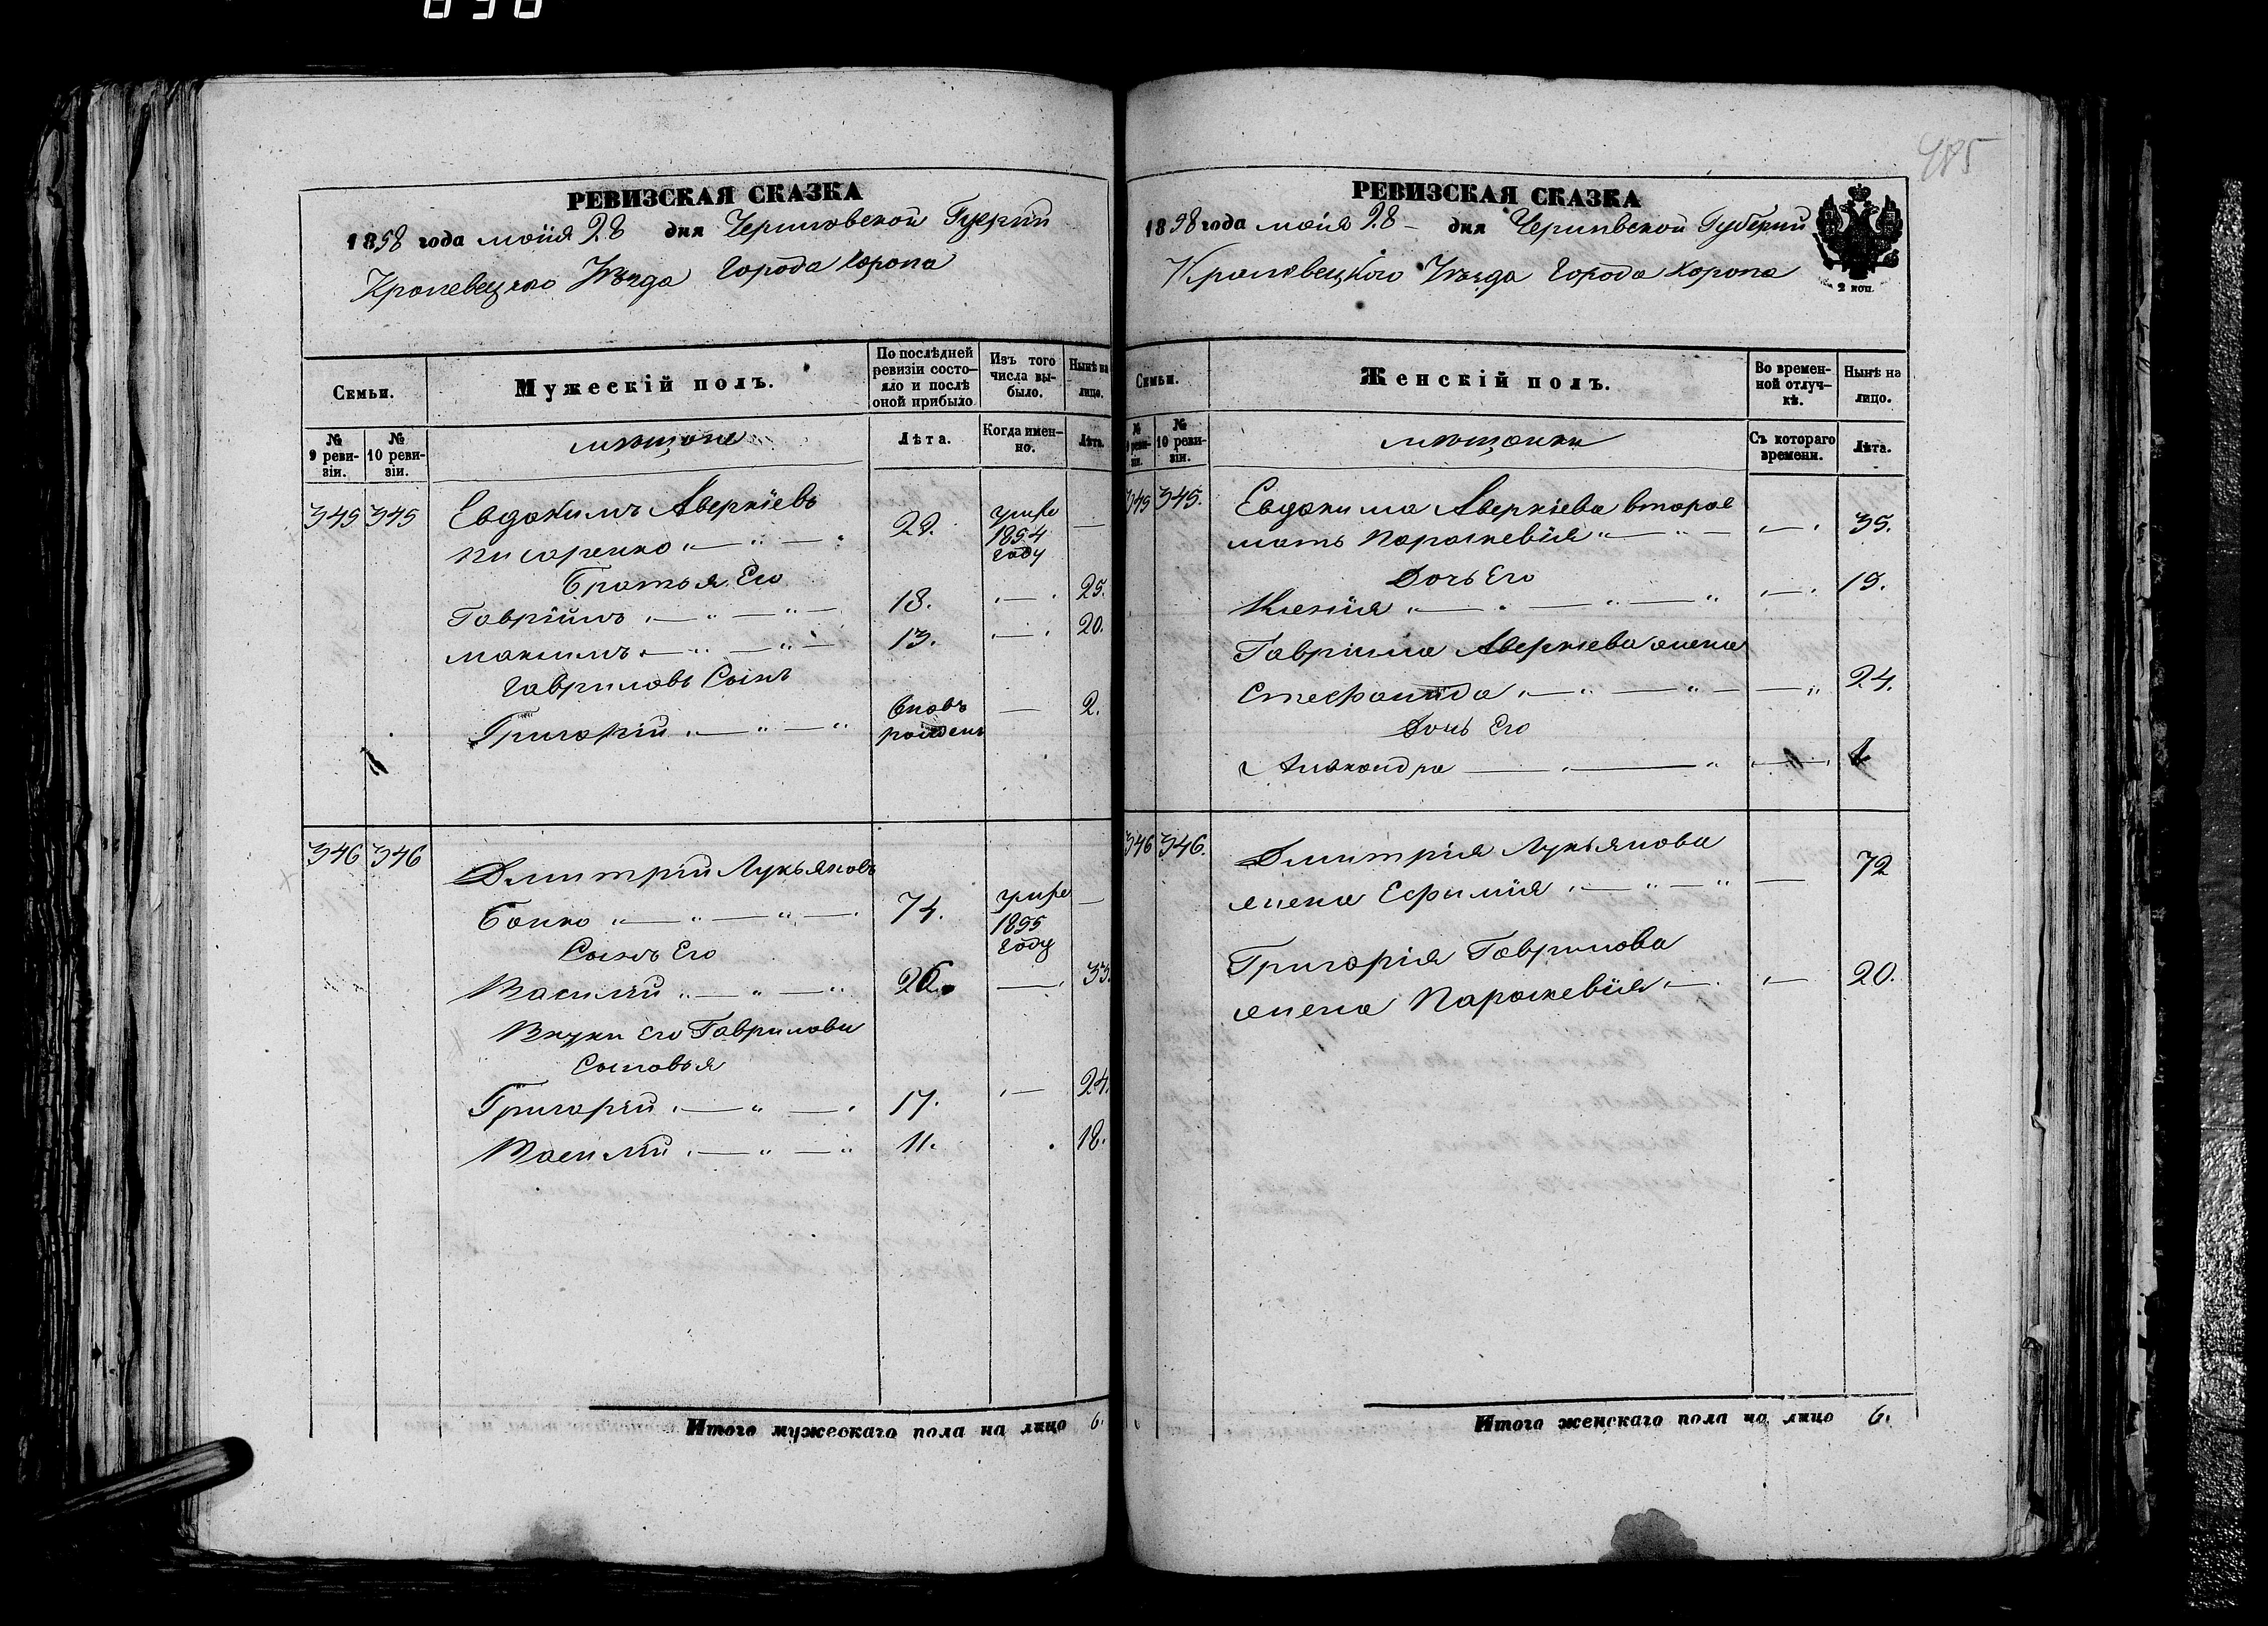 485
РЕВИЗСКАЯ СКАЗКА
1858 года маія 28 дня Черниговской Губерніи
Кролевецкаго Уѣзда Города Коропа
Семьи.
Мужескій полъ.
По послѣдней ревизіи состо-
яло и послѣ оной прибыло
Изъ того числа вы-
было.
Нынѣ на лицо.
№ 9 реви-
зіи.
№ 10 реви-
зіи.
мѣщане
Лѣта.
Когда имен-
но.
Лѣта.
345 345 Евдокимъ Аверкіевъ
Писаренко 22. умре 1854 году —
Братья Его
Гавріилъ 18. — 25.
Максимъ 13. — 20.
Гавриловъ Сынъ
Григорій вновь рожденъ — 2.
346 346 Дмитрій Лукьяновъ
Бойко 74. умре 1855 году —
Сынъ Его
Василій 26. — 33.
Внуки Его Гавриловы
Сыновья
Григорій 17. — 24.
Василій 11. 18.
Итого мужескаго пола на лицо 6.
РЕВИЗСКАЯ СКАЗКА
1858 года маія 28 — дня Черниговской Губерніи
Кролевецкаго Уѣзда Города Коропа
2 коп.
Семьи.
Женскій полъ.
Во времен-
ной отлуч-
кѣ.
Нынѣ на лицо.
№ 9 реви-
зіи.
№ 10 реви-
зіи.
мѣщанки
Съ котораго времени.
Лѣта.
345 345. Евдокима Аверкіева вторая
мать Параскевія — 35.
Дочь Его
Ксенія — 15.
Гавріила Аверкіева жена
Стефанида — 24.
Дочь Его
Александра — 1.
346 346. Дмитрія Лукьянова
жена Ефимія — 72
Григорія Гаврилова
жена Параскевія — 20.
Итого женскаго пола на лицо 6.